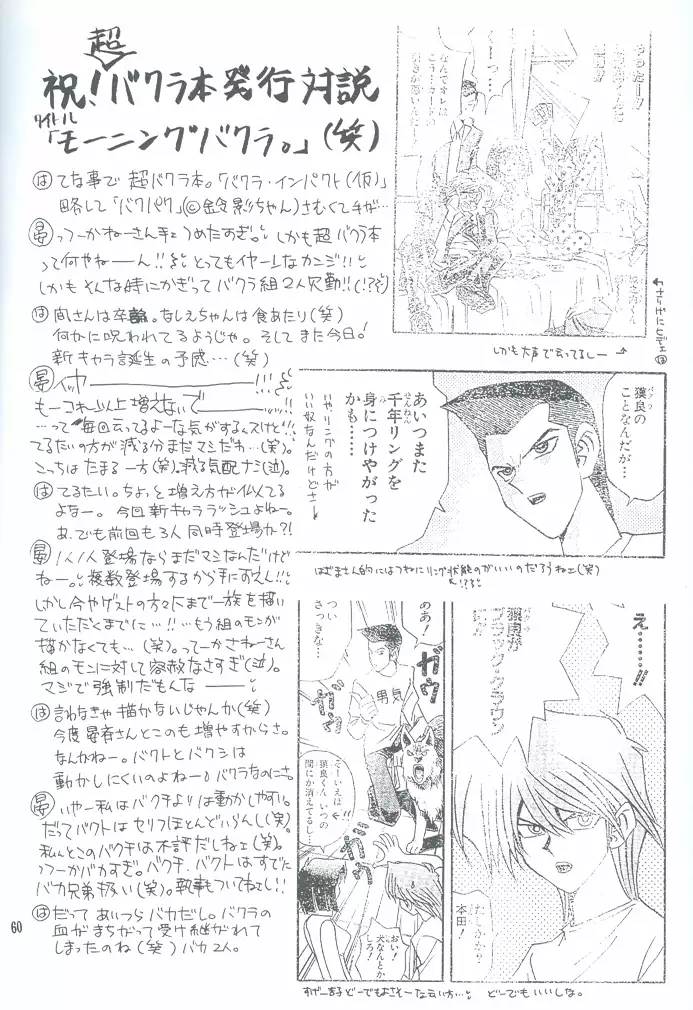 超
祝!バクラ本発行対説
タイトル
「モーニングバクラ。」(笑)
は てな事で超バクラ本。「バクラ・インパクト(仮)」
略して「バクパク」©鈴影ちゃん)さむくて手が…
晏 っつーかねーさん手ェつめたすぎ。しかも超バクラ本
って何やねーん!!とってもイヤーなカンジ!!
しかもそんな時にかぎってバクラ組2人欠勤!!(!?)
は 尚さんは卒論。なしえちゃんは食あたり(笑)
何かに呪われてるようじゃ。そしてまた今日!
新キャラ誕生の予感…(笑)
晏 イッヤ━━━!!!
もーコレ以上増えないで━━ッ!!
…って毎回云ってるよーな気がするんスけど!!
てるたいの方が減る分まだマシだわ…(笑)。
こっちはたまる一方(笑)。減る気配ナシ(泣)。
は てるたい。ちょっと増え方が似てる
よなー。今回新キャララッシュよねー。
あ、でも前回も3人同時登場か?!
晏 1人1人登場ならまだマシなんだけど
ねー。複数登場するから手にずえん!!
しかし今やゲストの方々にまで一族を描い
ていただくまでに…!!…もう組のモンが
描かなくても…(笑)。ってーかさねーさん
組のモンに対して容赦なさすぎ(泣)。
マジで強制だもんな━━
は 言わなきゃ描かないじゃんか(笑)
今度晏斉さんとこのも増やすからさ。
なんかねー。バクトとバクシは
動かしにくいのよねー。バクラなのにさ。
晏 いやー私はバクチよりは動かしやすい。
だってバクトはセリフほとんどいらんし(笑)。
私んとこのバクチは不評だしねェ(笑)。
っつーかバカすぎ。バクチ、バクトはすでに
バカ兄弟扱い(笑)。執事もついてねェし!!
は だってあいつらバカだし。バクラの
血がまちがって受け継がれて
しまったのね(笑)バカ2人。
60
やったー!!
なんでオレは
しかも大声で云ってるしー
獏良の
ことなんだが…
バクラ
あいつまた
千年リングを
身につけやがった
かも……
せんねん
いやリングの方が
いい奴なんだけどさー
はざまさん的にはつねにリング状態のがいいのだろうねェ(笑)
え…!!
獏良が
ブラック・クラウン
本田!
ああ!
つい
さっきな…
ガウ
ガウ
男気
そーいえば
獏良くん、いつの
間にか消えてるし…
おい!
犬なんとか
しろ!
すげーまるどーでもよさそーな云い方…
どーでもいいしな。